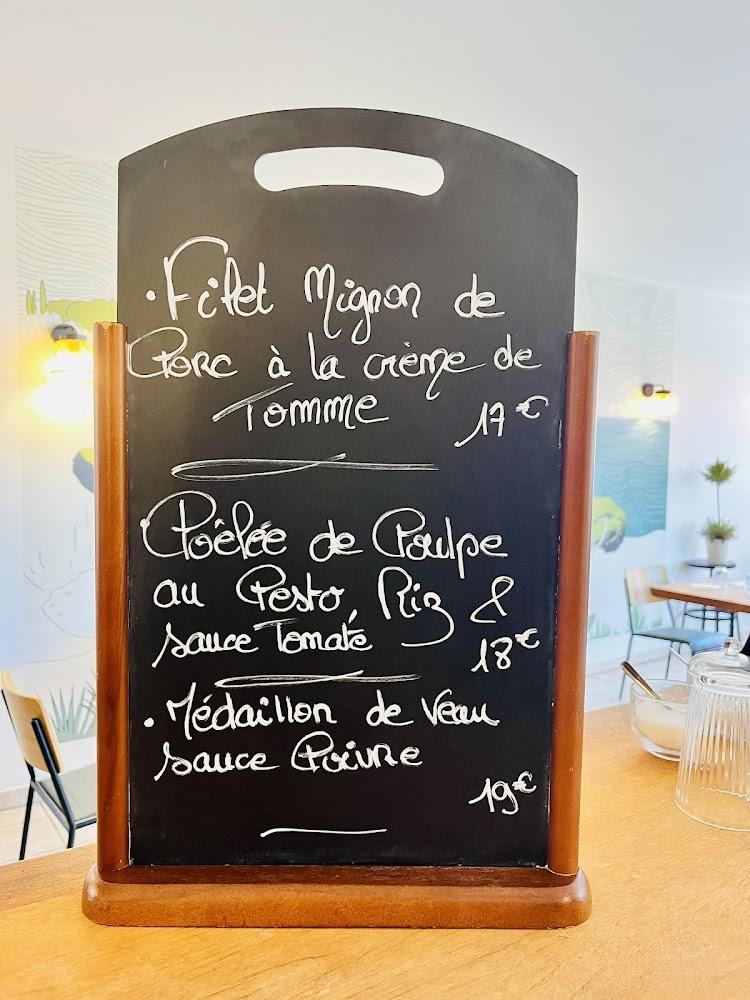 · Filet Mignon de
Porc à la crème de
Tomme 17€
· Poêlée de Poulpe
au Pesto, Riz &
sauce Tomate 18€
· Médaillon de Veau
sauce Poivre
19€